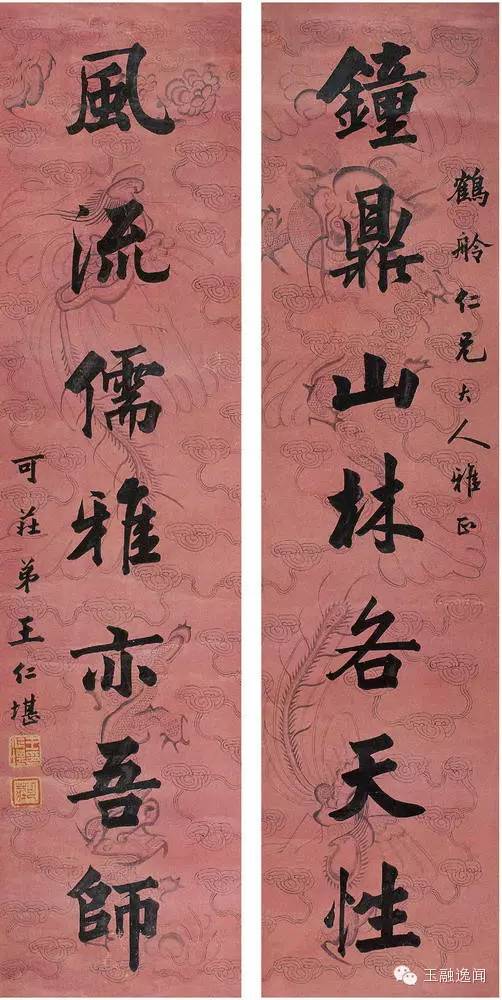 鶴舲仁兄大人雅正
鐘鼎山林各天性
風流儒雅亦吾師
可莊弟王仁堪
玉融逸闻